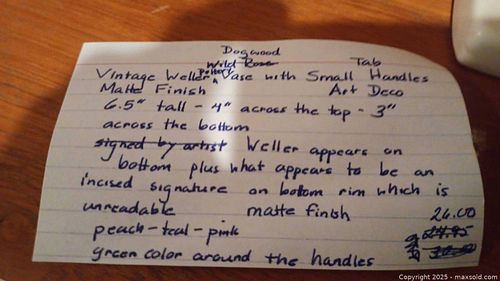 Dogwood
Wild Rose Tab
Vintage Weller Pottery Vase with Small Handles
Matte Finish Art Deco
6.5" tall - 4" across the top - 3"
across the bottom
signed by artist Weller appears on
bottom plus what appears to be an
incised signature on bottom rim which is
unreadable matte finish 26.00
peach-teal-pink
green color around the handles
Copyright © 2025 - maxsold.com